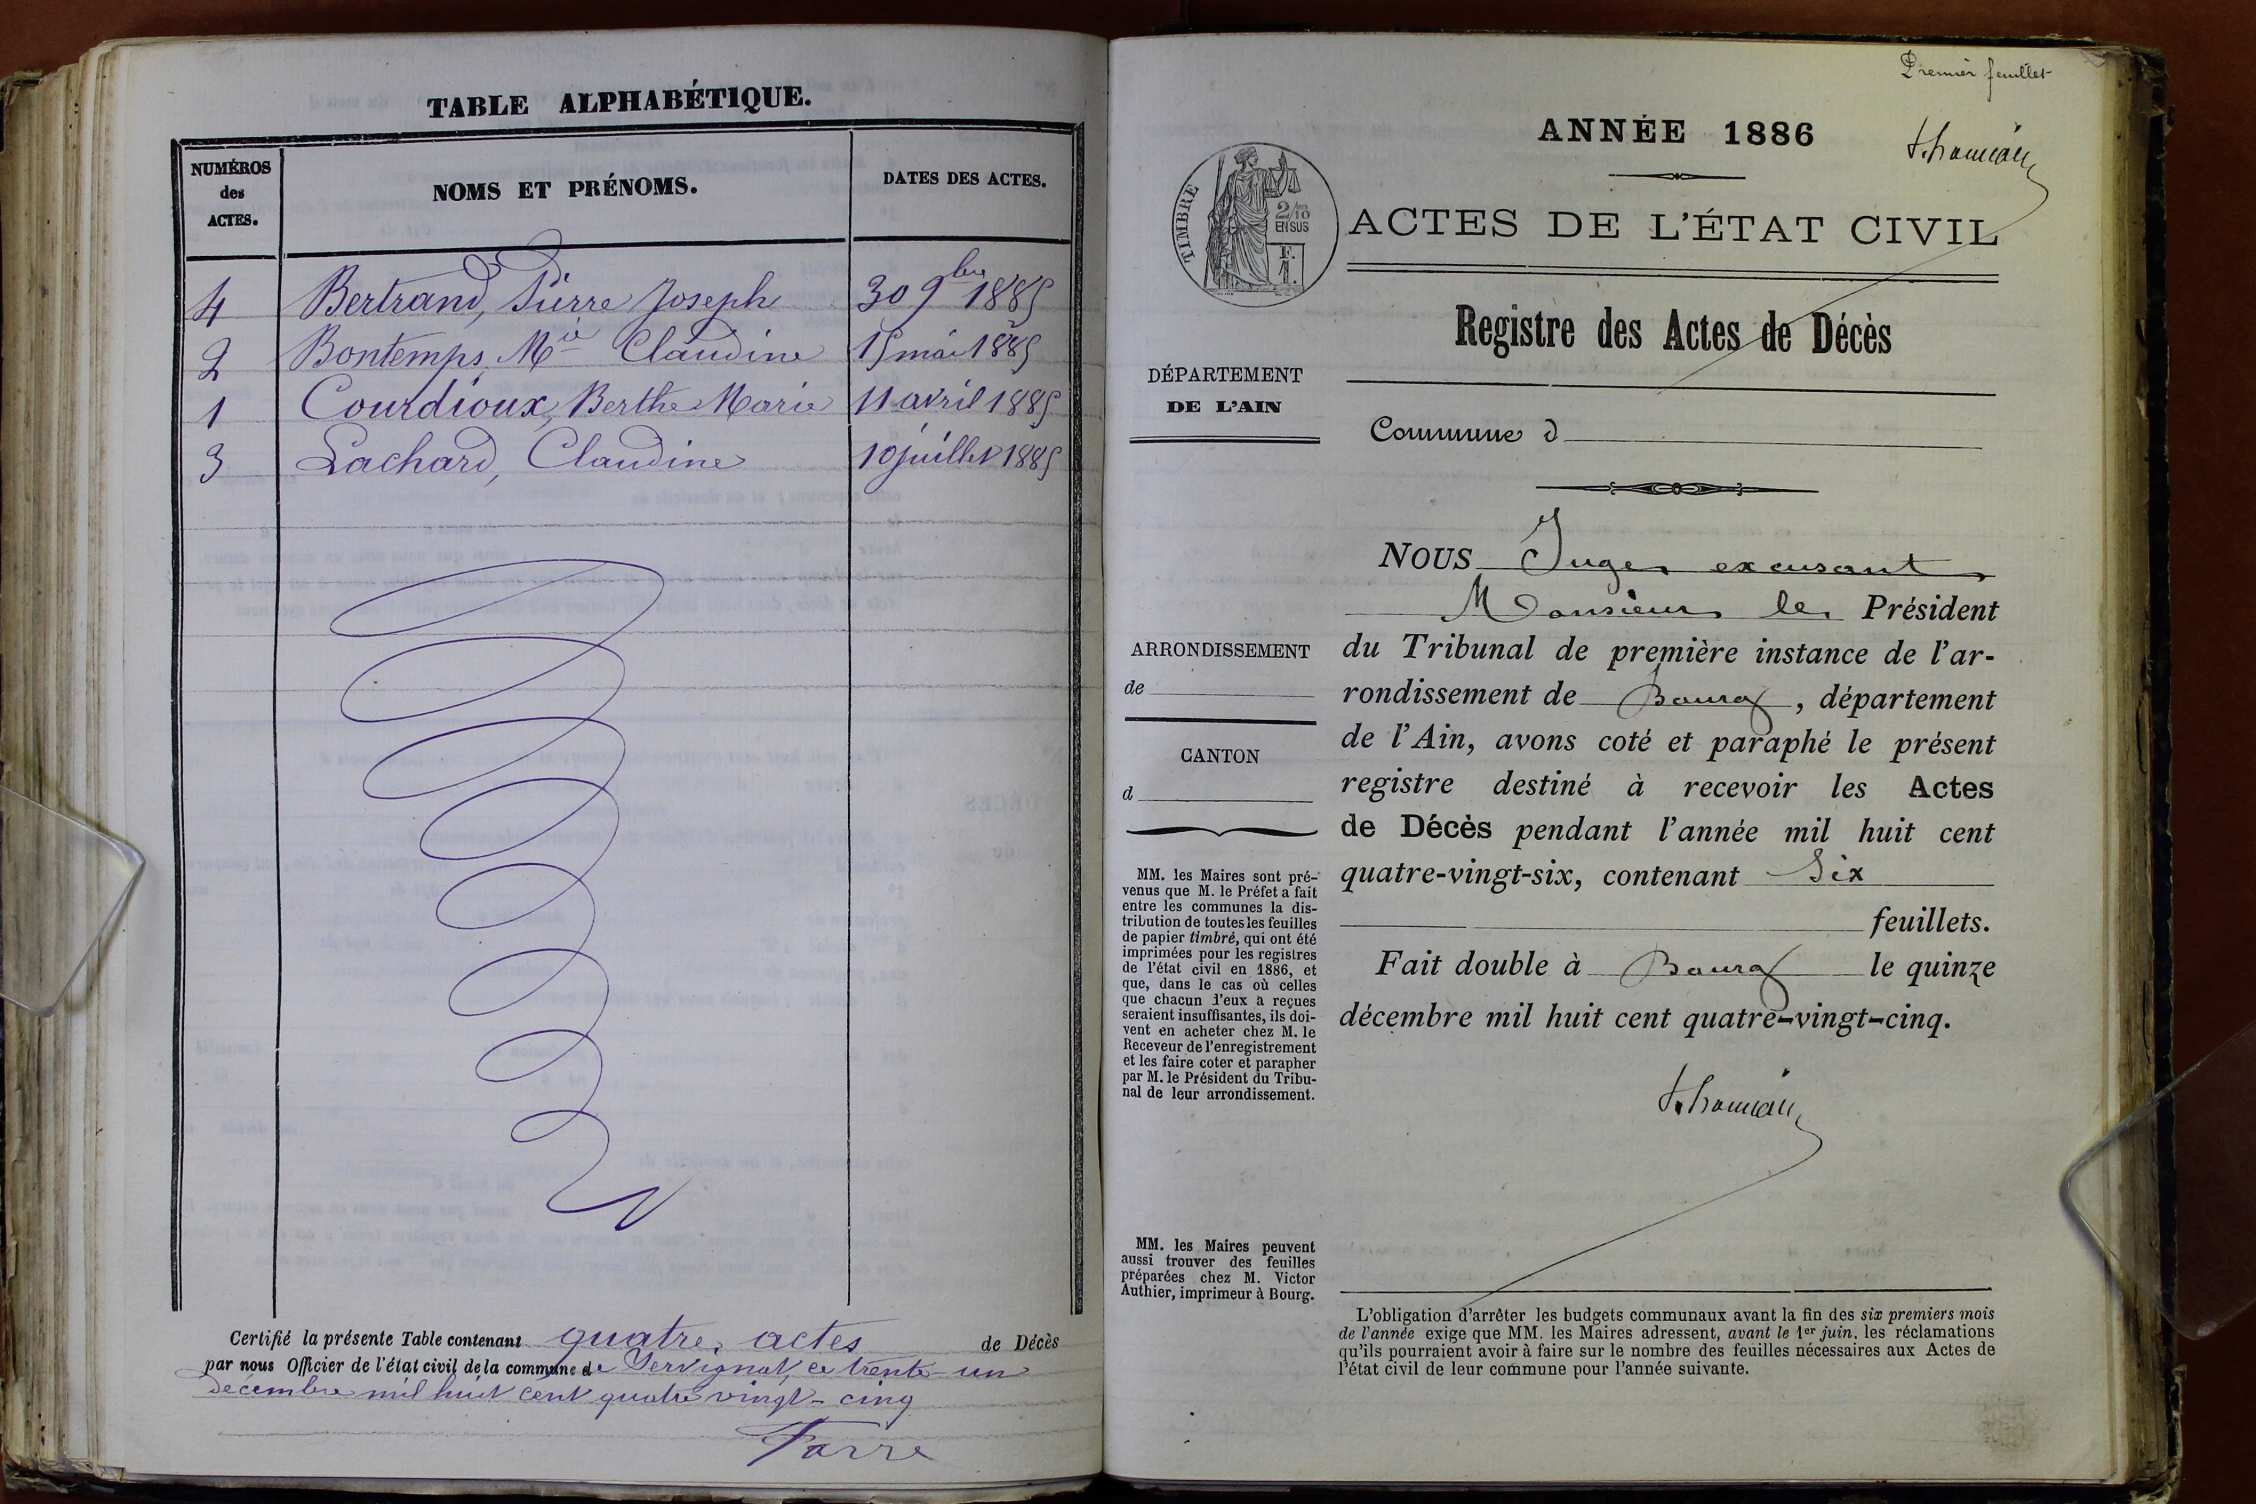 TABLE ALPHABÉTIQUE.
NUMÉROS des ACTES. NOMS ET PRÉNOMS. DATES DES ACTES.
4 Bertrand, Pierre Joseph 30 9bre 1885
2 Bontemps, Mie Claudine 15 mai 1885
1 Courdioux, Berthe Marie 11 avril 1885
3 Lachard, Claudine 10 juillet 1885
Certifié la présente Table contenant quatre actes de Décès
par nous Officier de l'état civil de la commune de Servignat, ce trente-un
décembre mil huit cent quatre vingt-cinq
Farre
Premier feuillet
ANNÉE 1886
TIMBRE
2/10
EN SUS
F.
1.
ACTES DE L'ÉTAT CIVIL
Registre des Actes de Décès
DÉPARTEMENT
DE L'AIN
Commune d
NOUS Juge excusant
Monsieur le Président
du Tribunal de première instance de l'ar-
rondissement de Bourg, département
de l'Ain, avons coté et paraphé le présent
registre destiné à recevoir les Actes
de Décès pendant l'année mil huit cent
quatre-vingt-six, contenant Six
feuillets.
Fait double à Bourg le quinze
décembre mil huit cent quatre-vingt-cinq.
ARRONDISSEMENT
de
CANTON
d
MM. les Maires sont pré-
venus que M. le Préfet a fait
entre les communes la dis-
tribution de toutes les feuilles
de papier timbré, qui ont été
imprimées pour les registres
de l'état civil en 1886, et
que, dans le cas où celles
que chacun d'eux a reçues
seraient insuffisantes, ils doi-
vent en acheter chez M. le
Receveur de l'enregistrement
et les faire coter et parapher
par M. le Président du Tribu-
nal de leur arrondissement.
MM. les Maires peuvent
aussi trouver des feuilles
préparées chez M. Victor
Authier, imprimeur à Bourg.
L'obligation d'arrêter les budgets communaux avant la fin des six premiers mois
de l'année exige que MM. les Maires adressent, avant le 1er juin, les réclamations
qu'ils pourraient avoir à faire sur le nombre des feuilles nécessaires aux Actes de
l'état civil de leur commune pour l'année suivante.